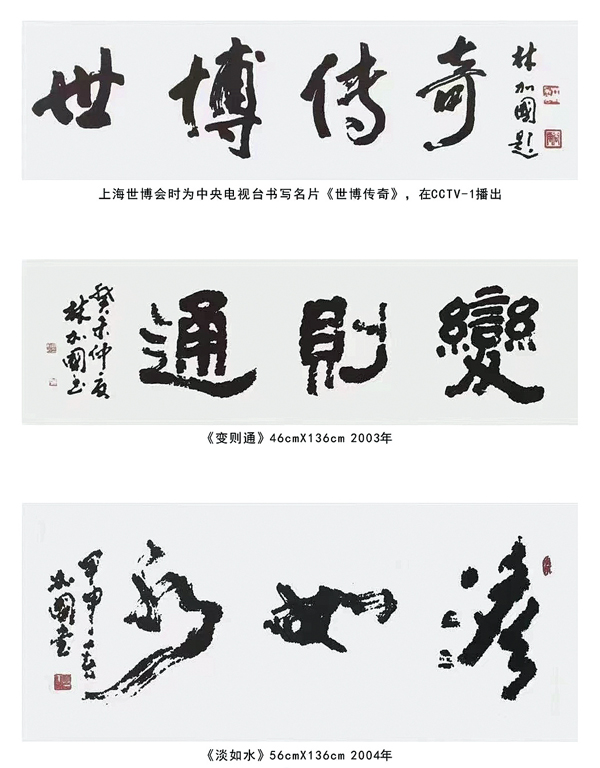 世博传奇
林加國题
上海世博会时为中央电视台书写名片《世博传奇》，在CCTV-1播出
變則通
癸未仲夏
林加國书
《变则通》46cmX136cm 2003年
淡如水
甲申
加國書
《淡如水》56cmX136cm 2004年